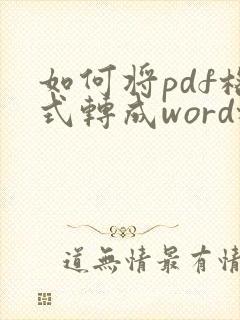 如何将pdf格
式轉成word
道無情最有情